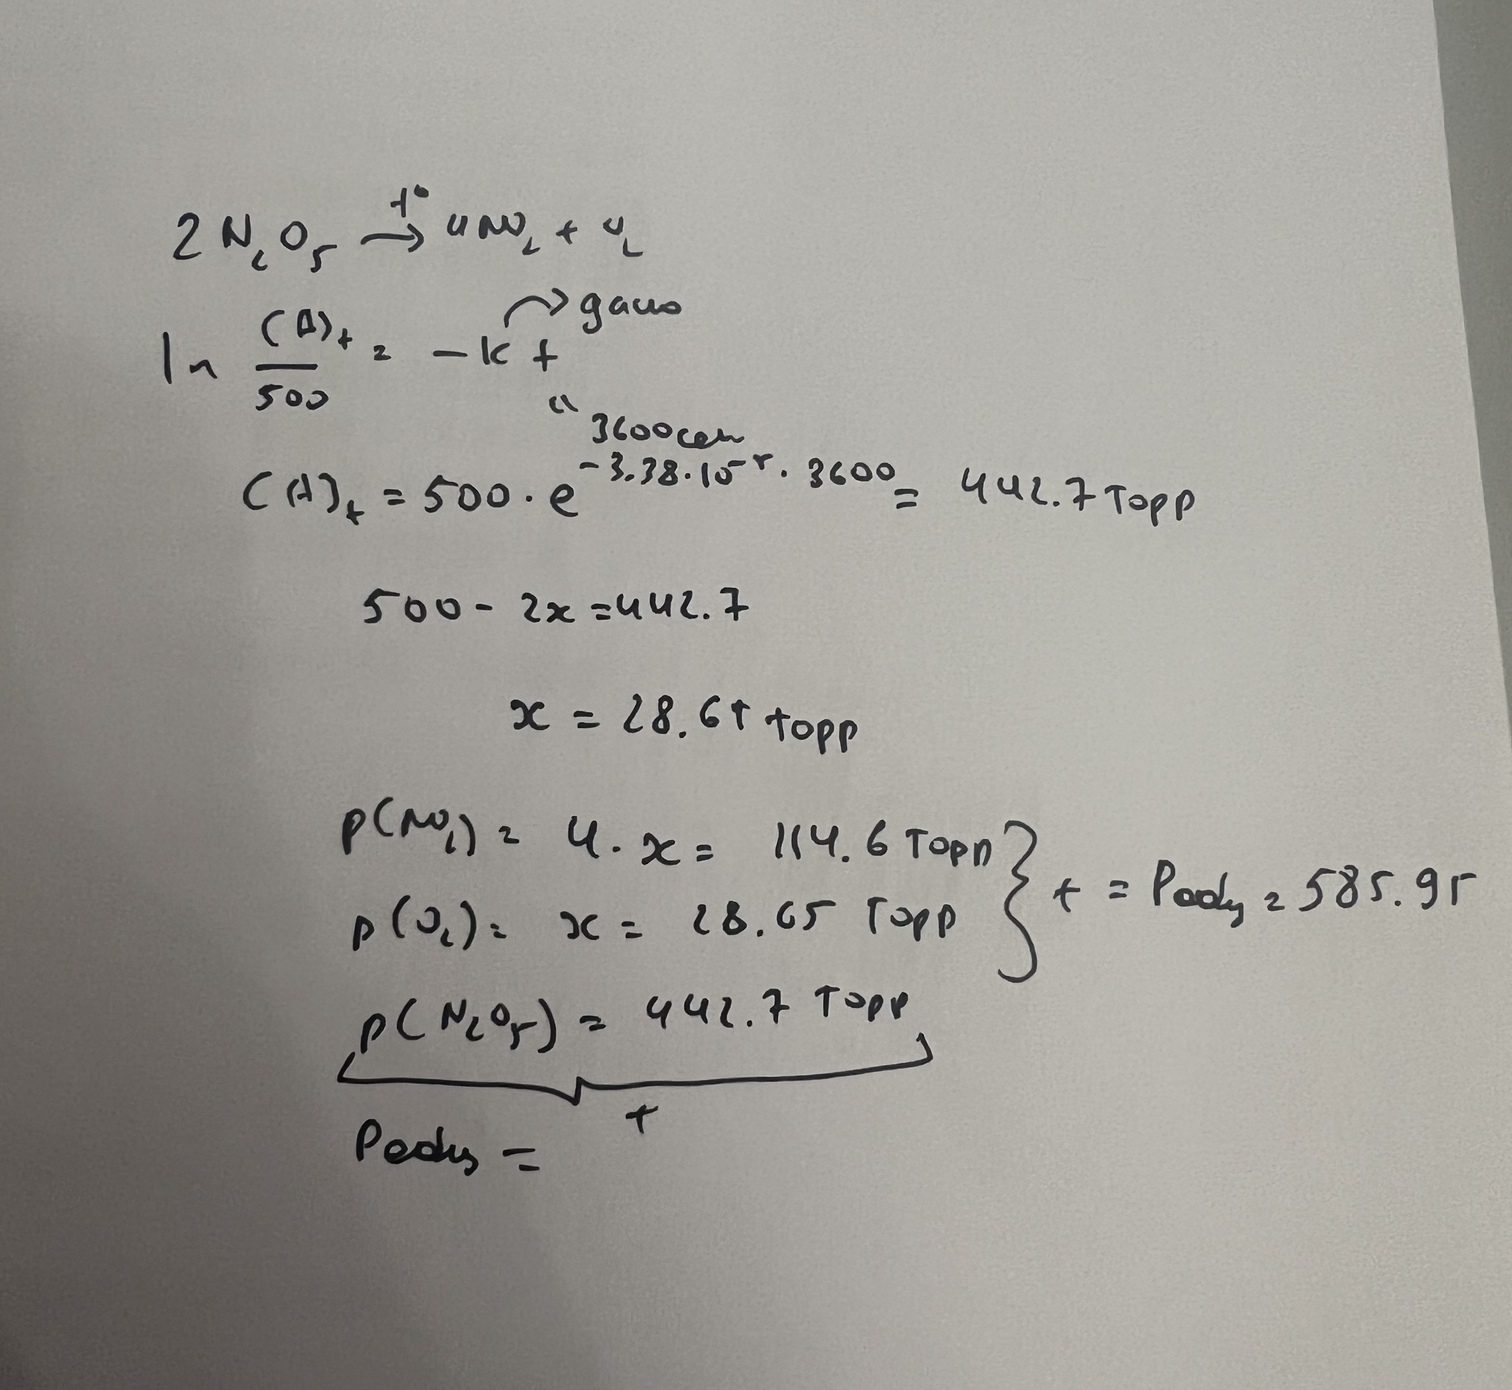 2 N₂O₅ →^t° 4NO₂ + O₂
ln (A)t / 500 = - k t → дано
" 3600 сек
(A)t = 500 · e^(-3.38·10⁻⁵ · 3600) = 442.7 Торр
500 - 2x = 442.7
x = 28.65 торр
p(NO₂) = 4 · x = 114.6 Торр
p(O₂) = x = 28.65 Торр } + = Pобщ = 585.95
p(N₂O₅) = 442.7 Торр
+
Pобщ =